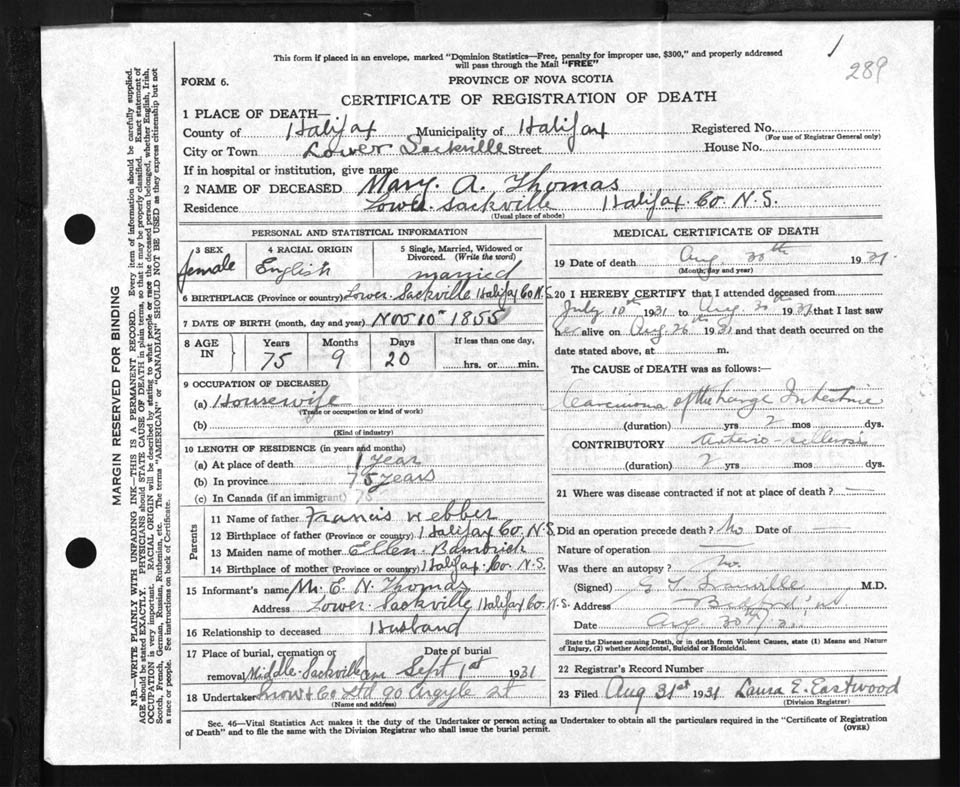 This form if placed in an envelope, marked "Dominion Statistics—Free, penalty for improper use, $300," and properly addressed
will pass through the Mail "FREE"
1
289
FORM 6.
PROVINCE OF NOVA SCOTIA
CERTIFICATE OF REGISTRATION OF DEATH
1 PLACE OF DEATH—
County of Halifax Municipality of Halifax Registered No.
(For use of Registrar General only)
City or Town Lower Sackville Street House No.
If in hospital or institution, give name
2 NAME OF DECEASED Mary. A. Thomas
Residence Lower Sackville Halifax Co. N.S.
(Usual place of abode)
PERSONAL AND STATISTICAL INFORMATION
3 SEX female
4 RACIAL ORIGIN English
5 Single, Married, Widowed or Divorced. (Write the word) married
6 BIRTHPLACE (Province or country) Lower Sackville Halifax Co N.S.
7 DATE OF BIRTH (month, day and year) Nov 10th 1855
8 AGE IN
Years Months Days If less than one day,
75 9 20 hrs. or min.
9 OCCUPATION OF DECEASED
(a) Housewife
(Trade or occupation or kind of work)
(b)
(Kind of industry)
10 LENGTH OF RESIDENCE (in years and months)
(a) At place of death 1 year
(b) In province 75 years
(c) In Canada (if an immigrant) 75
Parents
11 Name of father Francis Webber
12 Birthplace of father (Province or country) Halifax Co. N.S.
13 Maiden name of mother Ellen Bambrick
14 Birthplace of mother (Province or country) Halifax Co. N.S.
15 Informant's name Mr. E. N. Thomas
Address Lower Sackville Halifax Co. N.S.
16 Relationship to deceased Husband
17 Place of burial, cremation or removal Middle Sackville Date of burial Sept 1st 1931
18 Undertaker Snow & Co Ltd 90 Argyle St
(Name and address)
MEDICAL CERTIFICATE OF DEATH
19 Date of death Aug. 30th 1931.
(Month, day and year)
20 I HEREBY CERTIFY that I attended deceased from
July 10th 1931 to Aug. 30th 1931 that I last saw
her alive on Aug 26th 1931 and that death occurred on the
date stated above, at m.
The CAUSE of DEATH was as follows:—
Carcinoma of the Large Intestine
(duration) yrs. 2 mos dys.
CONTRIBUTORY arterio-sclerosis
(duration) 2 yrs mos. dys.
21 Where was disease contracted if not at place of death? —
Did an operation precede death? No Date of —
Nature of operation —
Was there an autopsy? No.
(Signed) M.D.
Address Bedford
Date Aug. 30th 31
State the Disease causing Death, or in death from Violent Causes, state (1) Means and Nature
of Injury, (2) whether Accidental, Suicidal or Homicidal.
22 Registrar's Record Number
23 Filed Aug 31st 1931 Laura E. Eastwood
(Division Registrar)
Sec. 46—Vital Statistics Act makes it the duty of the Undertaker or person acting as Undertaker to obtain all the particulars required in the "Certificate of Registration
of Death" and to file the same with the Division Registrar who shall issue the burial permit.
(OVER)
MARGIN RESERVED FOR BINDING
N.B.—WRITE PLAINLY WITH UNFADING INK—THIS IS A PERMANENT RECORD. Every item of information should be carefully supplied.
AGE should be stated EXACTLY. PHYSICIANS should STATE CAUSE OF DEATH in plain terms, so that it may be properly classified. Exact statement of
OCCUPATION is very important. RACIAL ORIGIN will be described by stating to what people or race the deceased person belonged, whether English, Irish,
Scotch, French, German, Russian, Ruthenian, etc. The terms "AMERICAN" or "CANADIAN" SHOULD NOT BE USED as they express citizenship but not
a race or people. See instructions on back of Certificate.